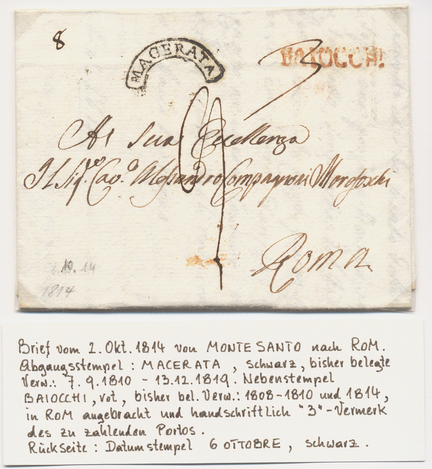 8
MACERATA
3 BAIOCCHI
A Sua Eccellenza
Il Sig.re Cav.e Alessandro Compagnoni Marefoschi
Roma
10. 14
1814
Brief vom 2. Okt. 1814 von MONTE SANTO nach ROM.
Abgangsstempel: MACERATA, schwarz, bisher belegte
Verw.: 7.9.1810 - 13.12.1819. Nebenstempel
BAIOCCHI, rot, bisher bel. Verw.: 1808-1810 und 1814,
in ROM angebracht und handschriftlich "3"-Vermerk
des zu zahlenden Portos.
Rückseite: Datumstempel 6 OTTOBRE, schwarz.